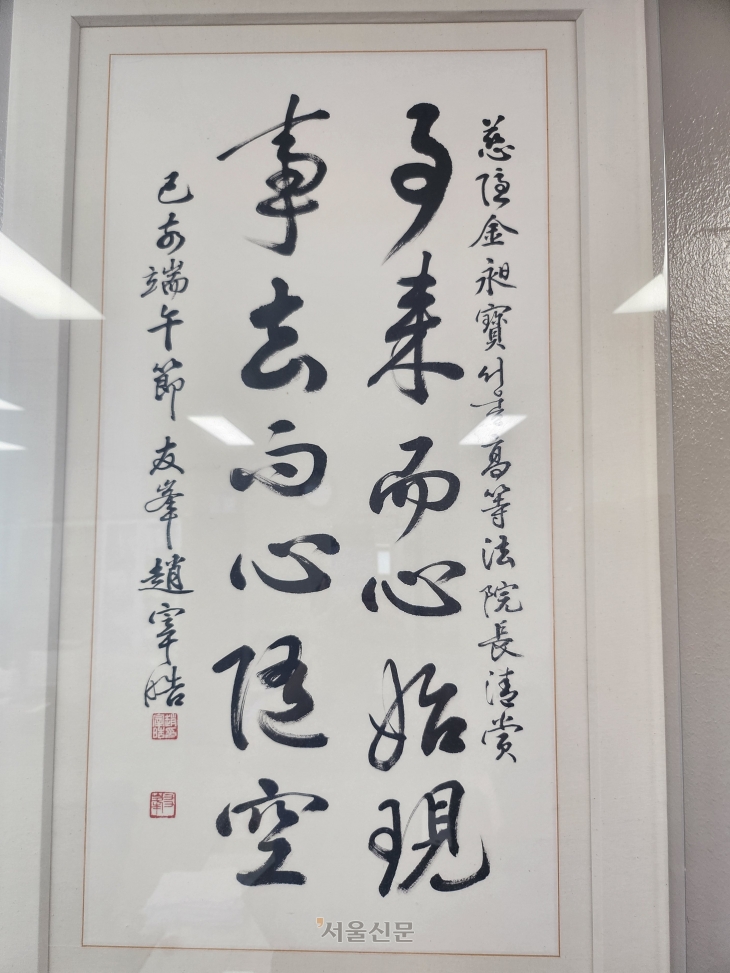 慈隱金昶寶서울高等法院長清賞
事來而心始現
事去而心隨空
己卯端午節 友峯 趙宰皓
서울신문